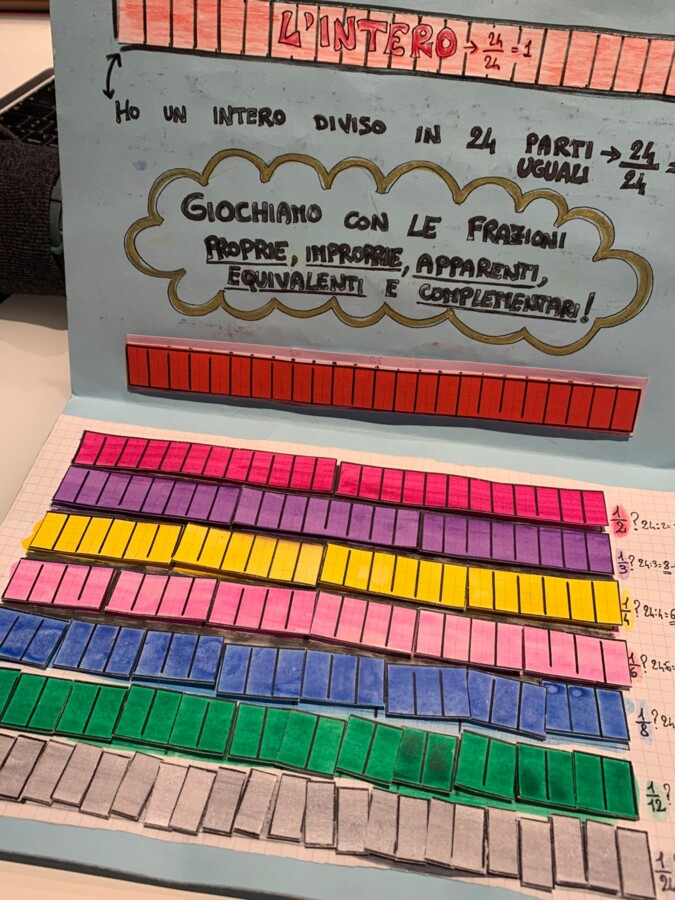 L'INTERO → 24/24 = 1
HO UN INTERO DIVISO IN 24 PARTI UGUALI → 24/24 =
GIOCHIAMO CON LE FRAZIONI
PROPRIE, IMPROPRIE, APPARENTI,
EQUIVALENTI E COMPLEMENTARI!
1/2 ? 24:2=
1/3 ? 24:3=8
1/4 ? 24:4=6
1/6 ? 24:6=
1/8 ? 24
1/12 ?
1/24